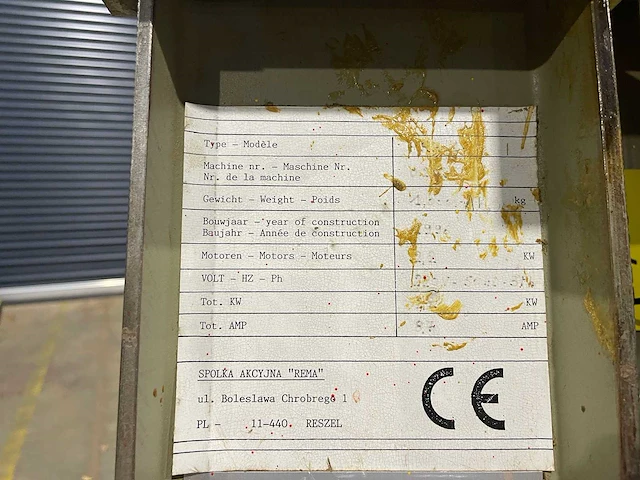 Type - Modèle
Machine nr. - Maschine Nr.
Nr. de la machine
Gewicht - Weight - Poids kg
Bouwjaar - year of construction
Baujahr - Année de construction
Motoren - Motors - Moteurs KW
VOLT - HZ - Ph
Tot. KW KW
Tot. AMP AMP
SPOLKA AKCYJNA "REMA"
ul. Boleslawa Chrobrego 1
PL - 11-440. RESZEL
CE